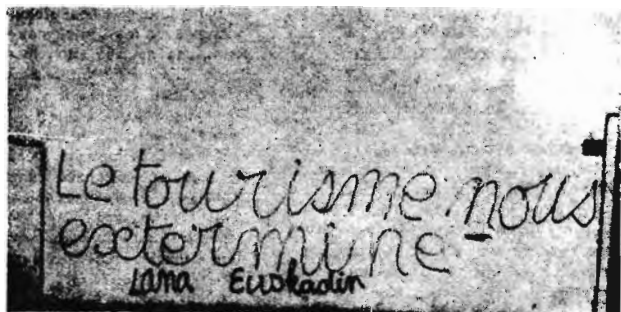 Le tourisme nous
extermine
Lana Euskadin